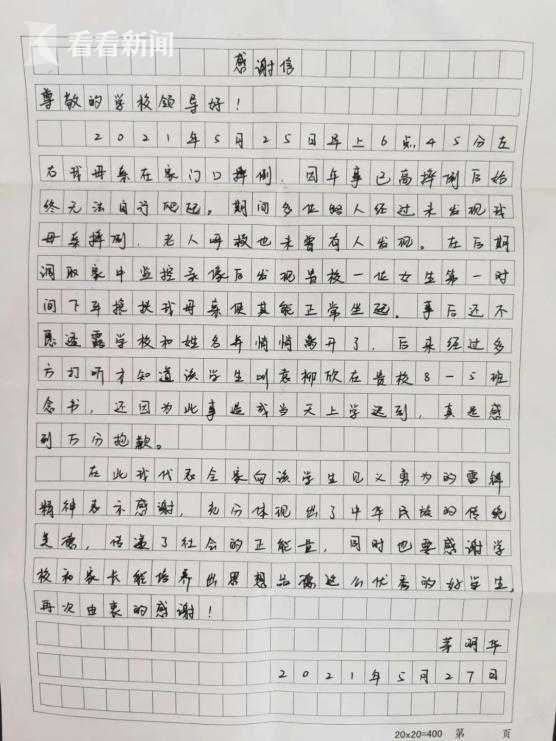 看看新闻
感谢信
尊敬的学校领导好！
2021年5月25日早上6点45分左
右我母亲在家门口摔倒，因年事已高摔倒后始
终无法自行爬起。期间多位路人经过未发现我
母亲摔倒，老人呼救也未曾有人发现。在后期
调取家中监控录像后发现贵校一位女生第一时
间下车搀扶我母亲使其能正常坐起。事后还不
愿透露学校和姓名并悄悄离开了，后来经过多
方打听才知道该学生叫袁柳欣在贵校8-5班
念书，还因为此事是我当天上学迟到，真是感
到万分抱歉。
在此我代表全家向该学生见义勇为的雷锋
精神表示感谢，充分体现出了中华民族的传统
美德，传递了社会的正能量，同时也要感谢学
校和家长能培养出思想品德这么优秀的好学生。
再次由衷的感谢！
华
2021年5月27日
20x20=400 第 页